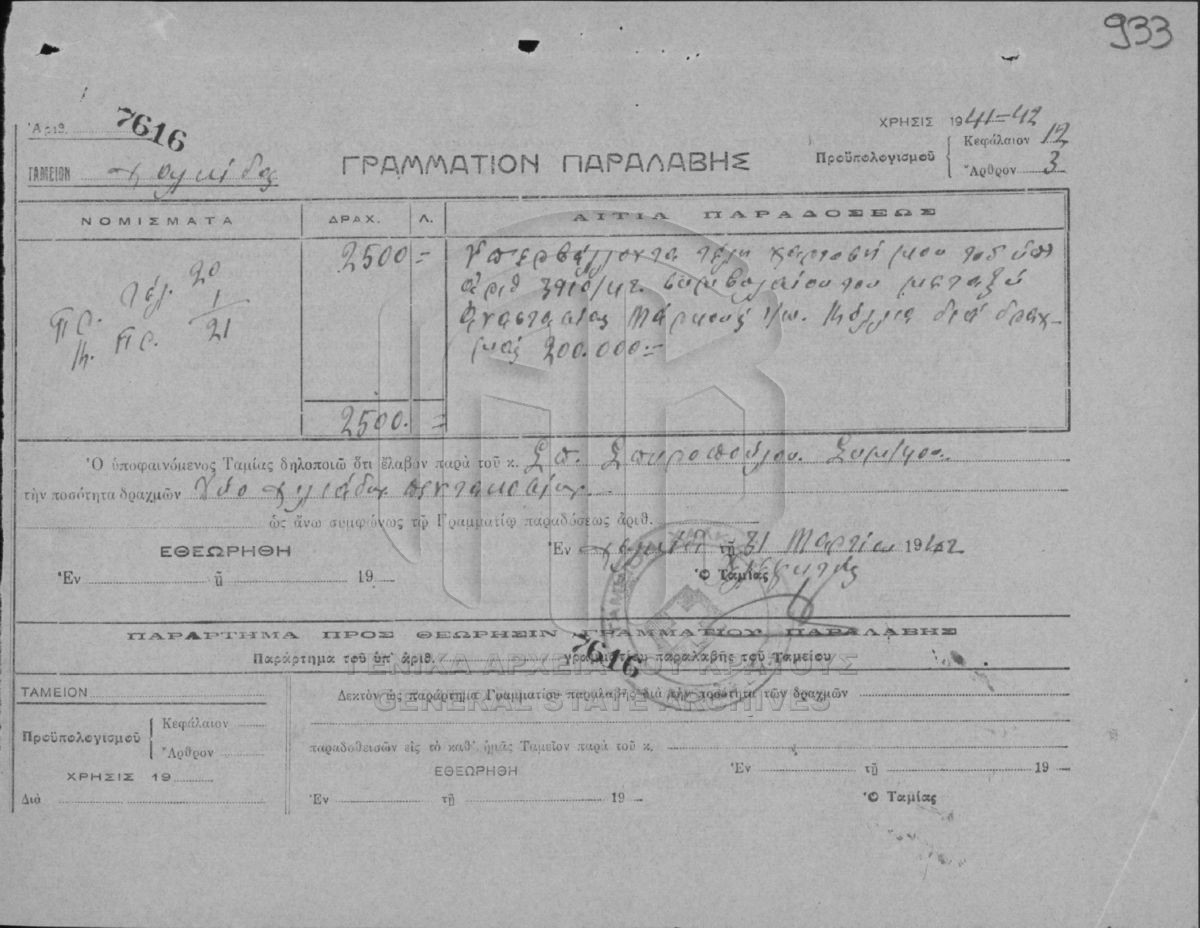 933
Ἀριθ. 7616
ΧΡΗΣΙΣ 1941-42
ΤΑΜΕΙΟΝ Χαλκίδος
ΓΡΑΜΜΑΤΙΟΝ ΠΑΡΑΛΑΒΗΣ
Προϋπολογισμοῦ
Κεφάλαιον 12
Ἄρθρον 3
ΝΟΜΙΣΜΑΤΑ ΔΡΑΧ. Λ. ΑΙΤΙΑ ΠΑΡΑΔΟΣΕΩΣ
2500 = Ὑπερβάλλοντα τέλη χαρτοσήμου τοῦ ὑπ
τέλ. 20 ἀριθ συμβολαίου του μεταξύ
Πρ. 1 Ἀναστασίας
Πρ. 21 διά δραχ-
μάς 200.000=
2500. =
Ὁ ὑποφαινόμενος Ταμίας δηλοποιῶ ὅτι ἔλαβον παρὰ τοῦ κ. Σπ. Σπυροπούλου
τὴν ποσότητα δραχμῶν Δύο χιλιάδας πεντακοσίας
ὡς ἄνω συμφώνως τῷ Γραμματίῳ παραδόσεως ἀριθ.
ΕΘΕΩΡΗΘΗ
Ἐν Χαλκίδι τῇ 31 Μαρτίου 1942
Ἐν τῇ 19
Ὁ Ταμίας
ΠΑΡΑΡΤΗΜΑ ΠΡΟΣ ΘΕΩΡΗΣΙΝ ΓΡΑΜΜΑΤΙΟΥ ΠΑΡΑΛΑΒΗΣ
Παράρτημα τοῦ ὑπ' ἀριθ. 7616 γραμματίου παραλαβῆς τοῦ Ταμείου
ΓΕΝΙΚΑ ΑΡΧΕΙΑ ΤΟΥ ΚΡΑΤΟΥΣ
GENERAL STATE ARCHIVES
ΤΑΜΕΙΟΝ
Δεκτὸν ὡς παράρτημα Γραμματίου παραλαβῆς διὰ τὴν ποσότητα τῶν δραχμῶν
Προϋπολογισμοῦ
Κεφάλαιον
Ἄρθρον
παραδοθεισῶν εἰς τὸ καθ' ἡμᾶς Ταμεῖον παρὰ τοῦ κ.
ΕΘΕΩΡΗΘΗ
Ἐν τῇ 19
ΧΡΗΣΙΣ 19
Διὰ
Ἐν τῇ 19
Ὁ Ταμίας